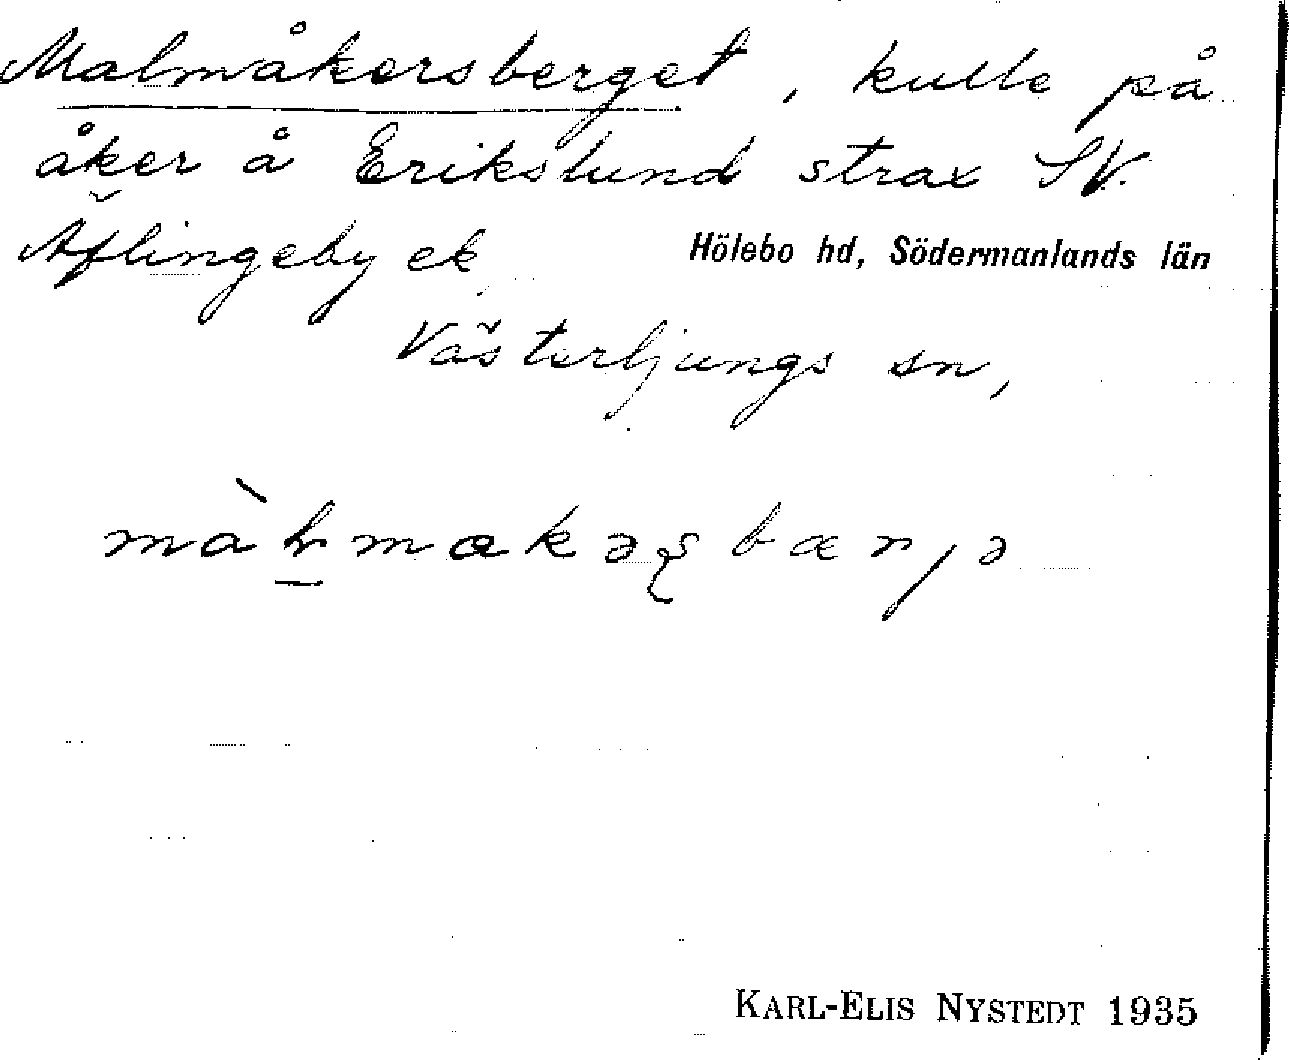 Malmåkersberget, kulle på
åker å Erikslund strax SV.
Äflingeby ek
Hölebo hd, Södermanlands län
Västerljungs sn,
KARL-ELIS NYSTEDT 1935